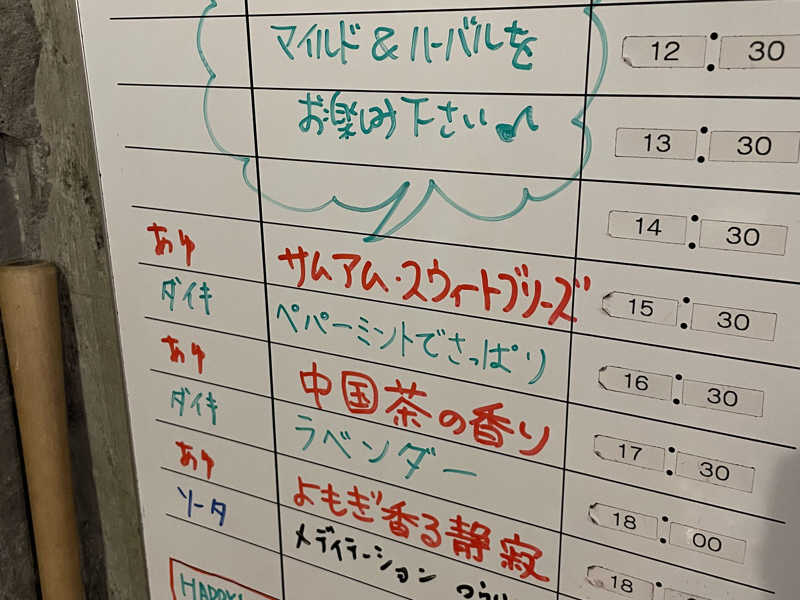 マイルド & ハーバルを 12:30
お楽しみ下さい♪ 13:30
14:30
あゆ サムアム・スウィートブリーズ 15:30
ダイキ ペパーミントでさっぱり 16:30
あゆ 中国茶の香り 17:30
ダイキ ラベンダー 18:00
あゆ よもぎ香る静寂 18
ソータ メディテーション
HAPPY!